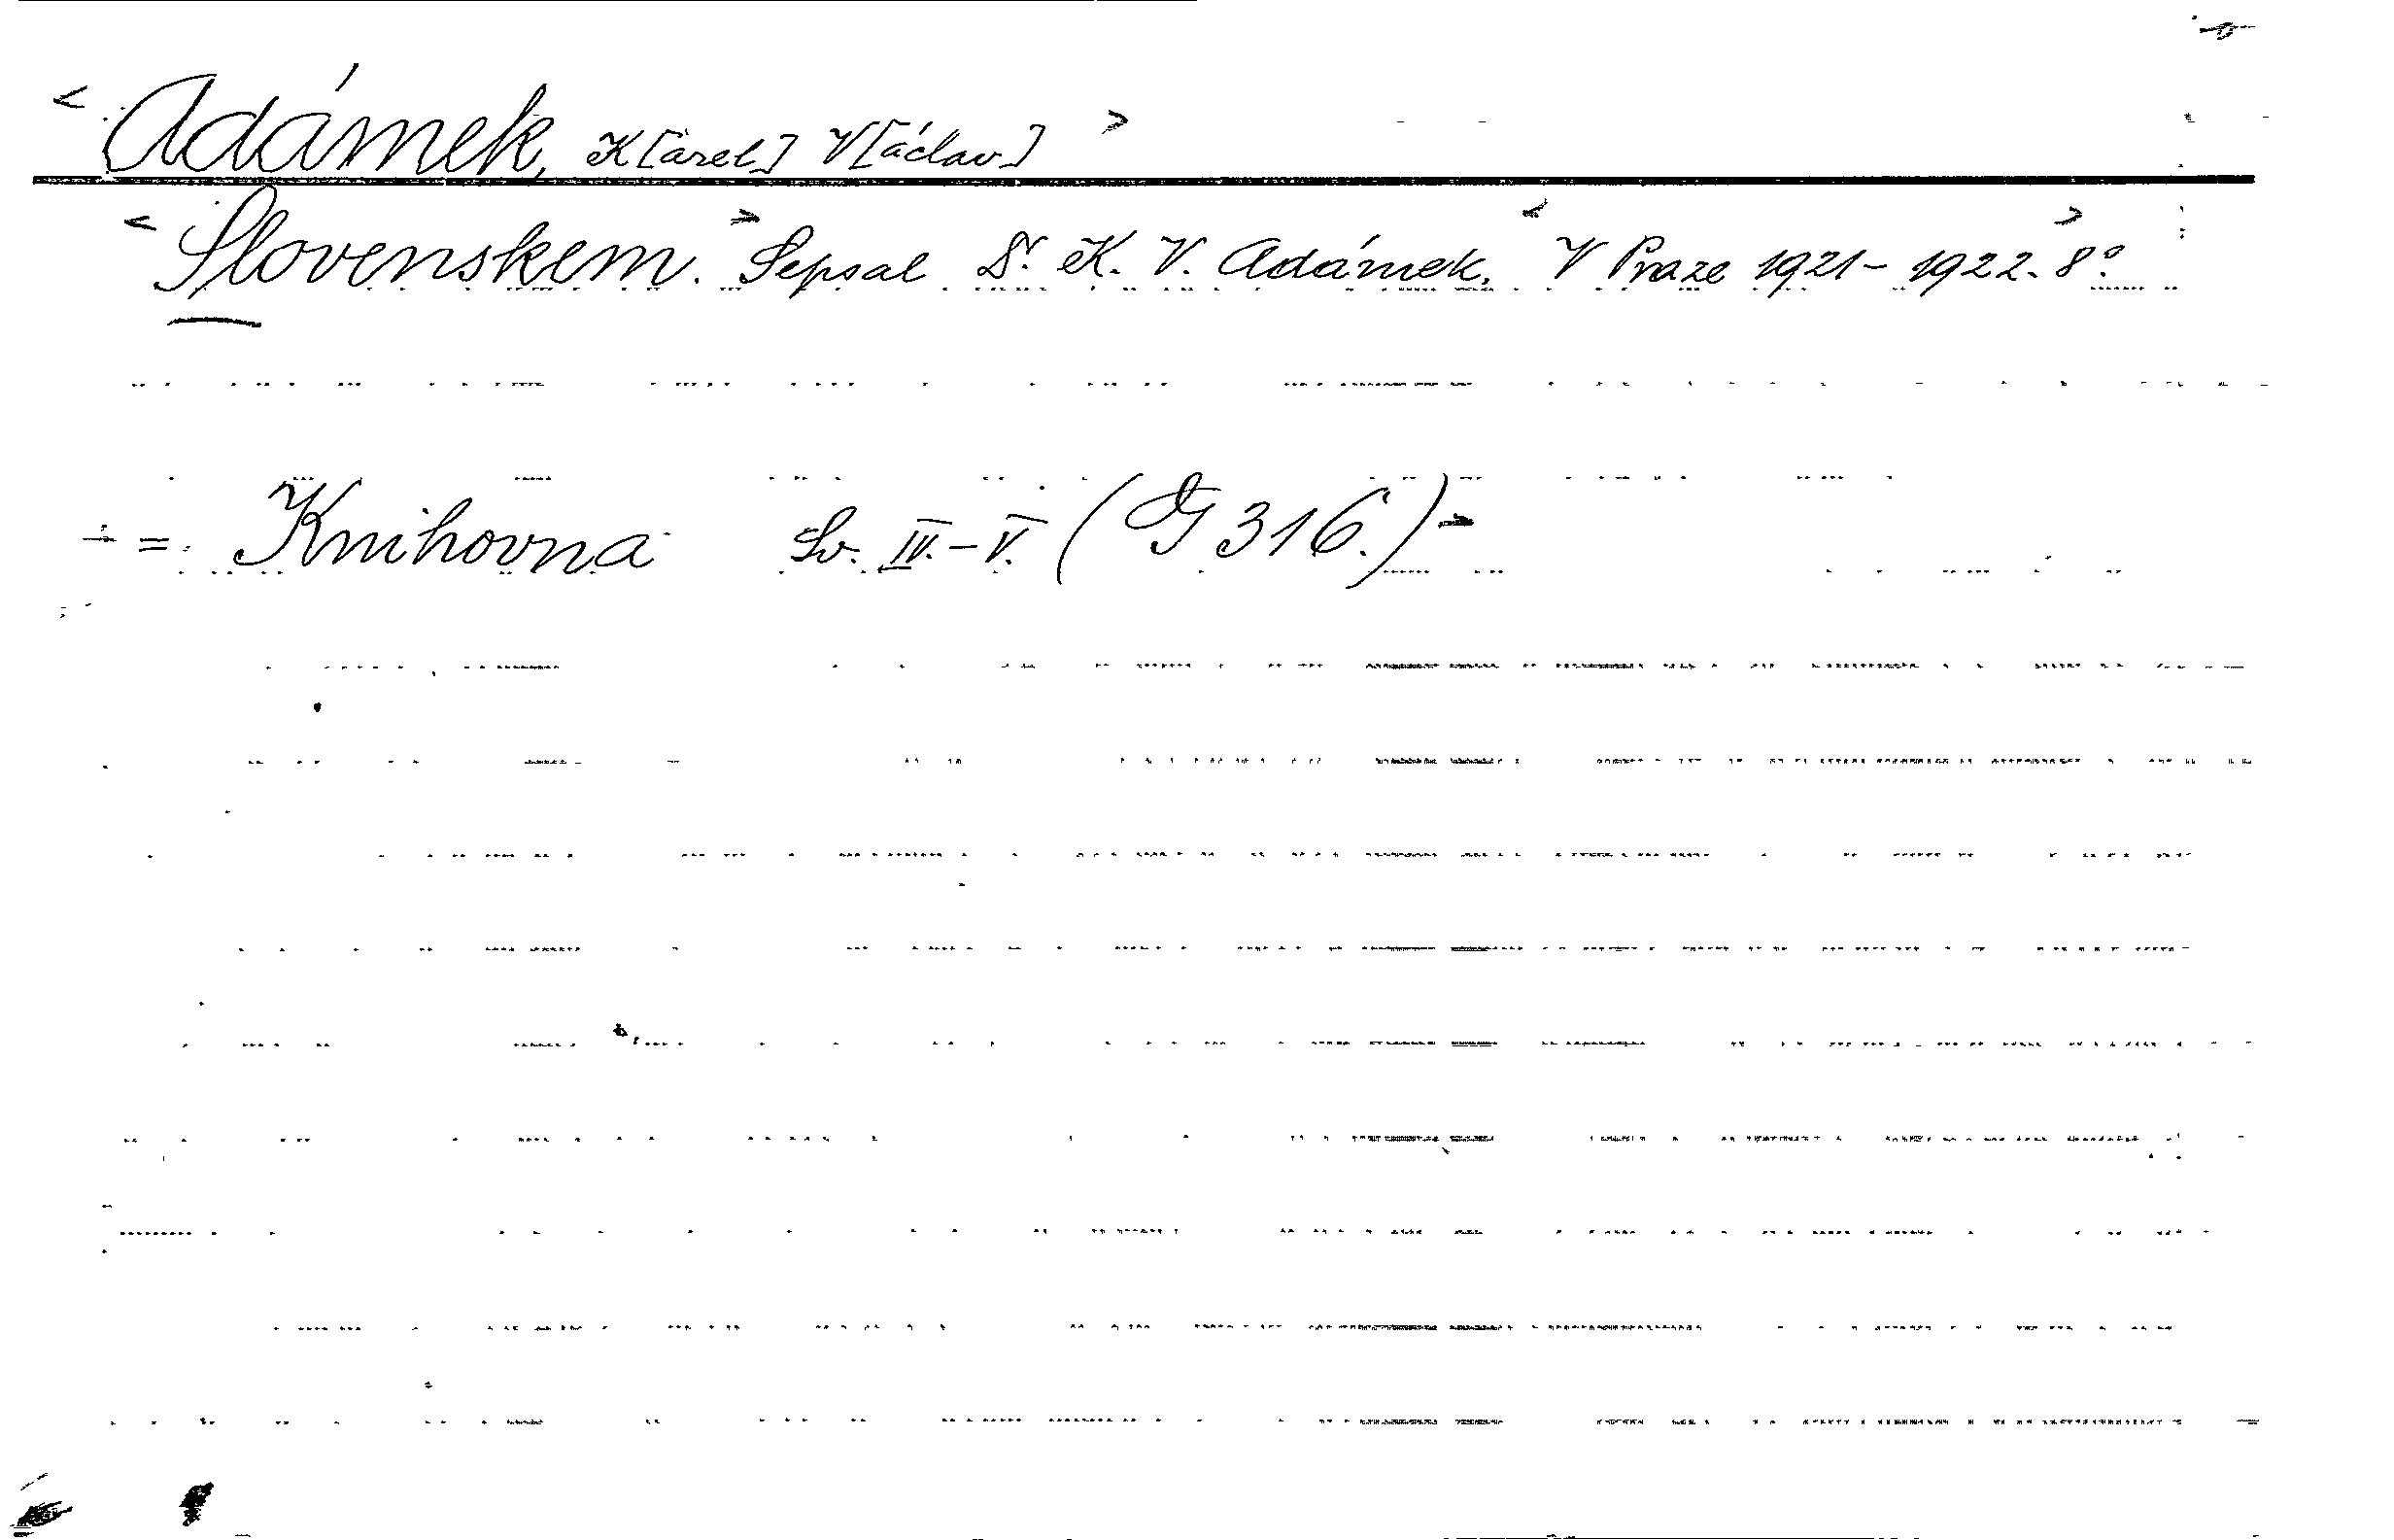 < Adámek, K[arel] V[áclav] >
< Slovenskem. > Sepsal Dr. K. V. Adámek. < V Praze 1921-1922. > 8°.
= Knihovna Sv. IV.-V. (G 316.)